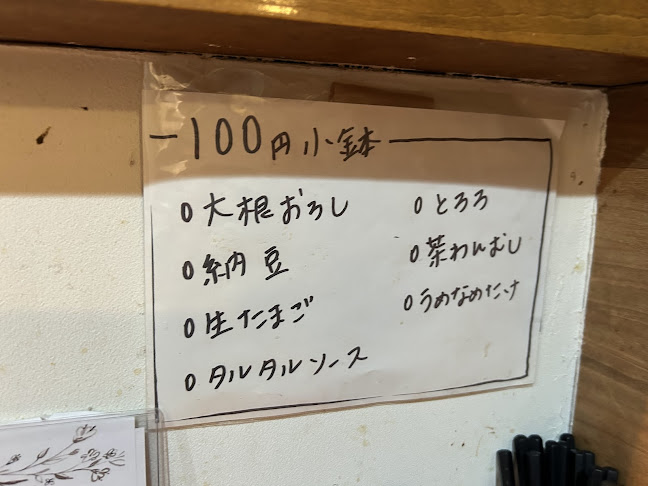 100円小鉢
○大根おろし
○納豆
○生たまご
○タルタルソース
○とろろ
○茶わんむし
○うめなめたけ